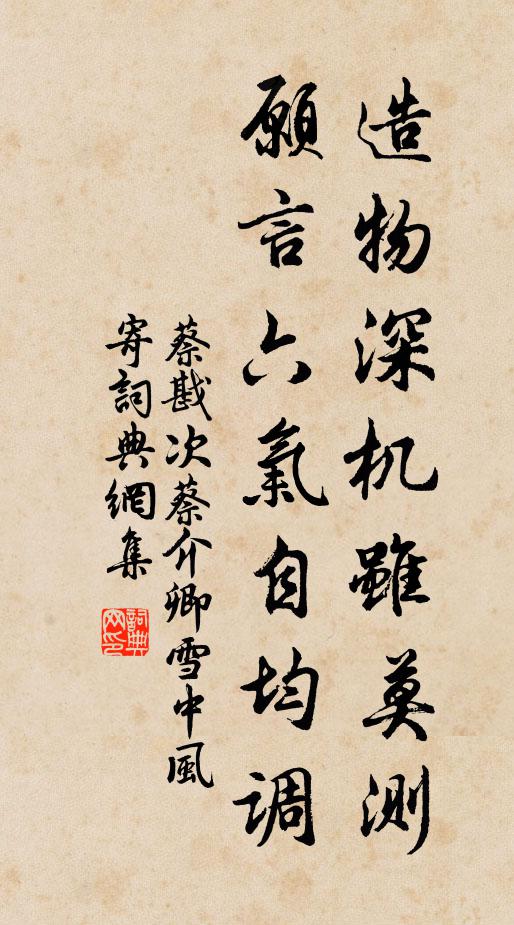 造物深机雖莫測
願言六氣自均調
蔡戡次蔡介卿雪中風
寄詞典網集
詞典网印